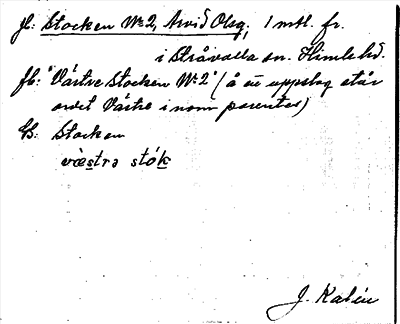 jb: Stocken No 2, Arvid Olsg, 1 mtl. fr.
i Stråvalla sn. Himle hd.
fb: "Västre Stocken No 2" (å ett uppslag står
ordet Västre inom parentes)
U: Stocken
væstrə stók
J. Kalén